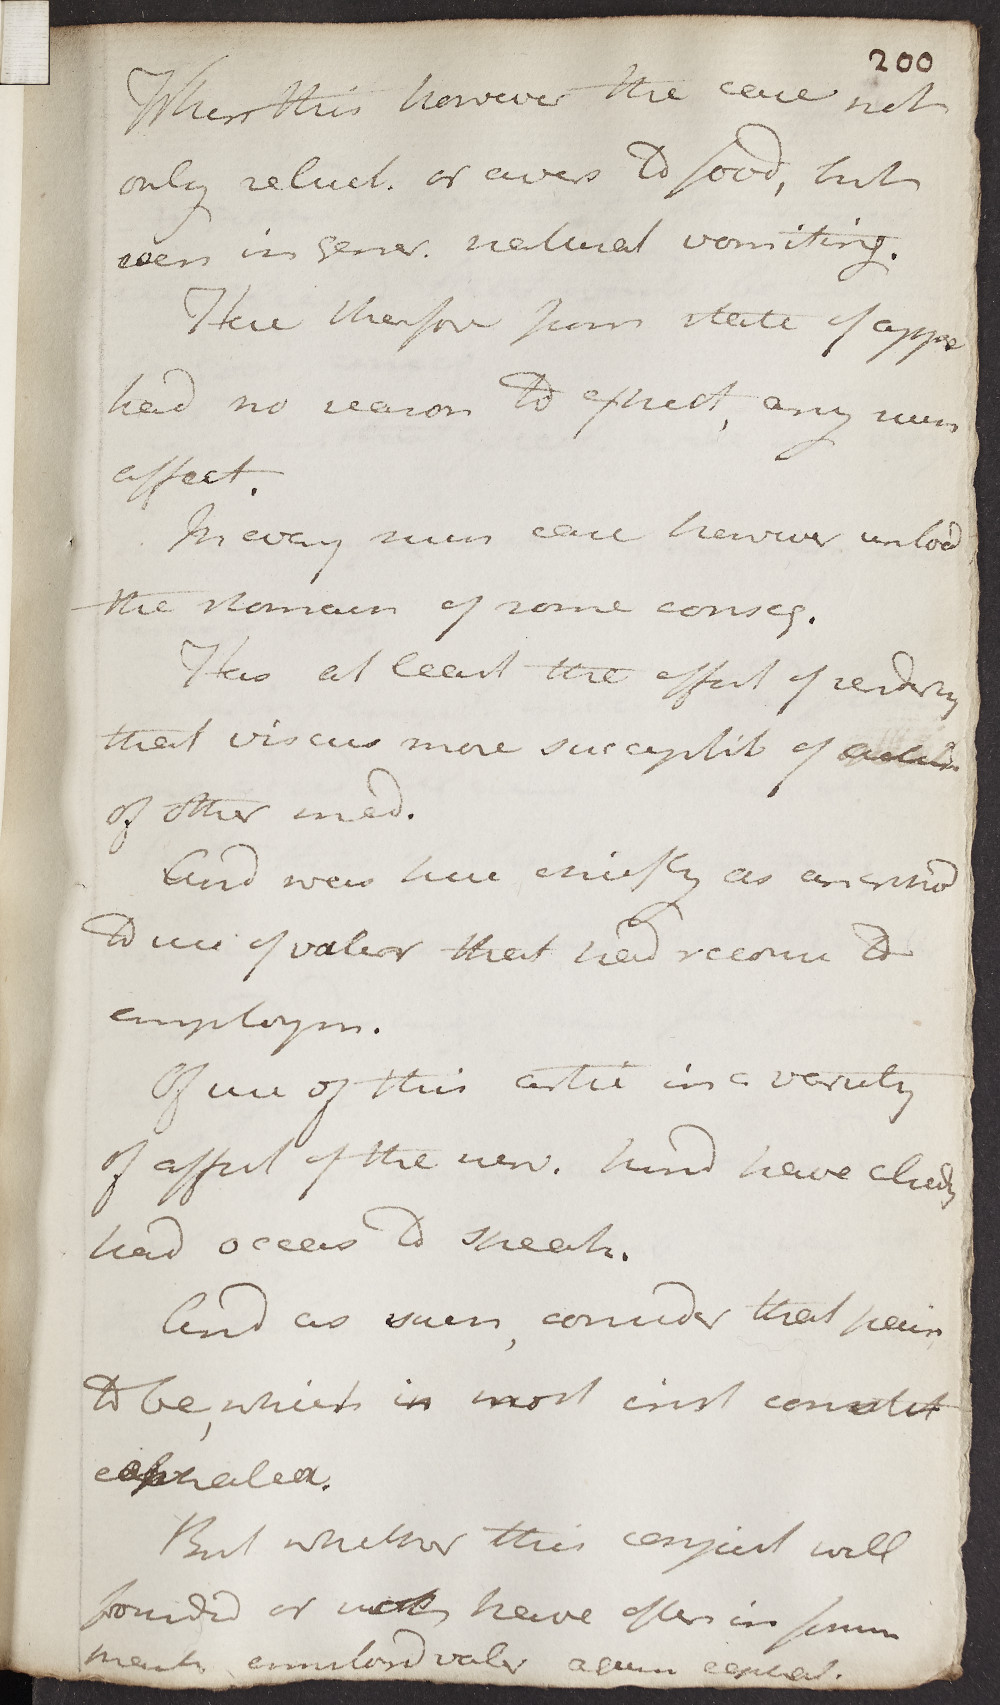 200
Where this however the case not
only reluct. or avers to food, but
even in gener. natural vomiting.
Here therfore from state of appe
had no reason to expect, any such
affect.
In every such case however unload
the stomach of some conseq.
Has at least the effect of rendering
that viscus more susceptib of
of other med.
And was here chiefly as
to use of valer that had recours to
employm.
Of use of this artic in a variety
of affect of the nerv. kind have alredy
had occas to speak.
And as such, consider that pain
to be, which in most inst constitut
cephalea.
But whether this conject well
founded or not have often in form
employd valer again cephal.